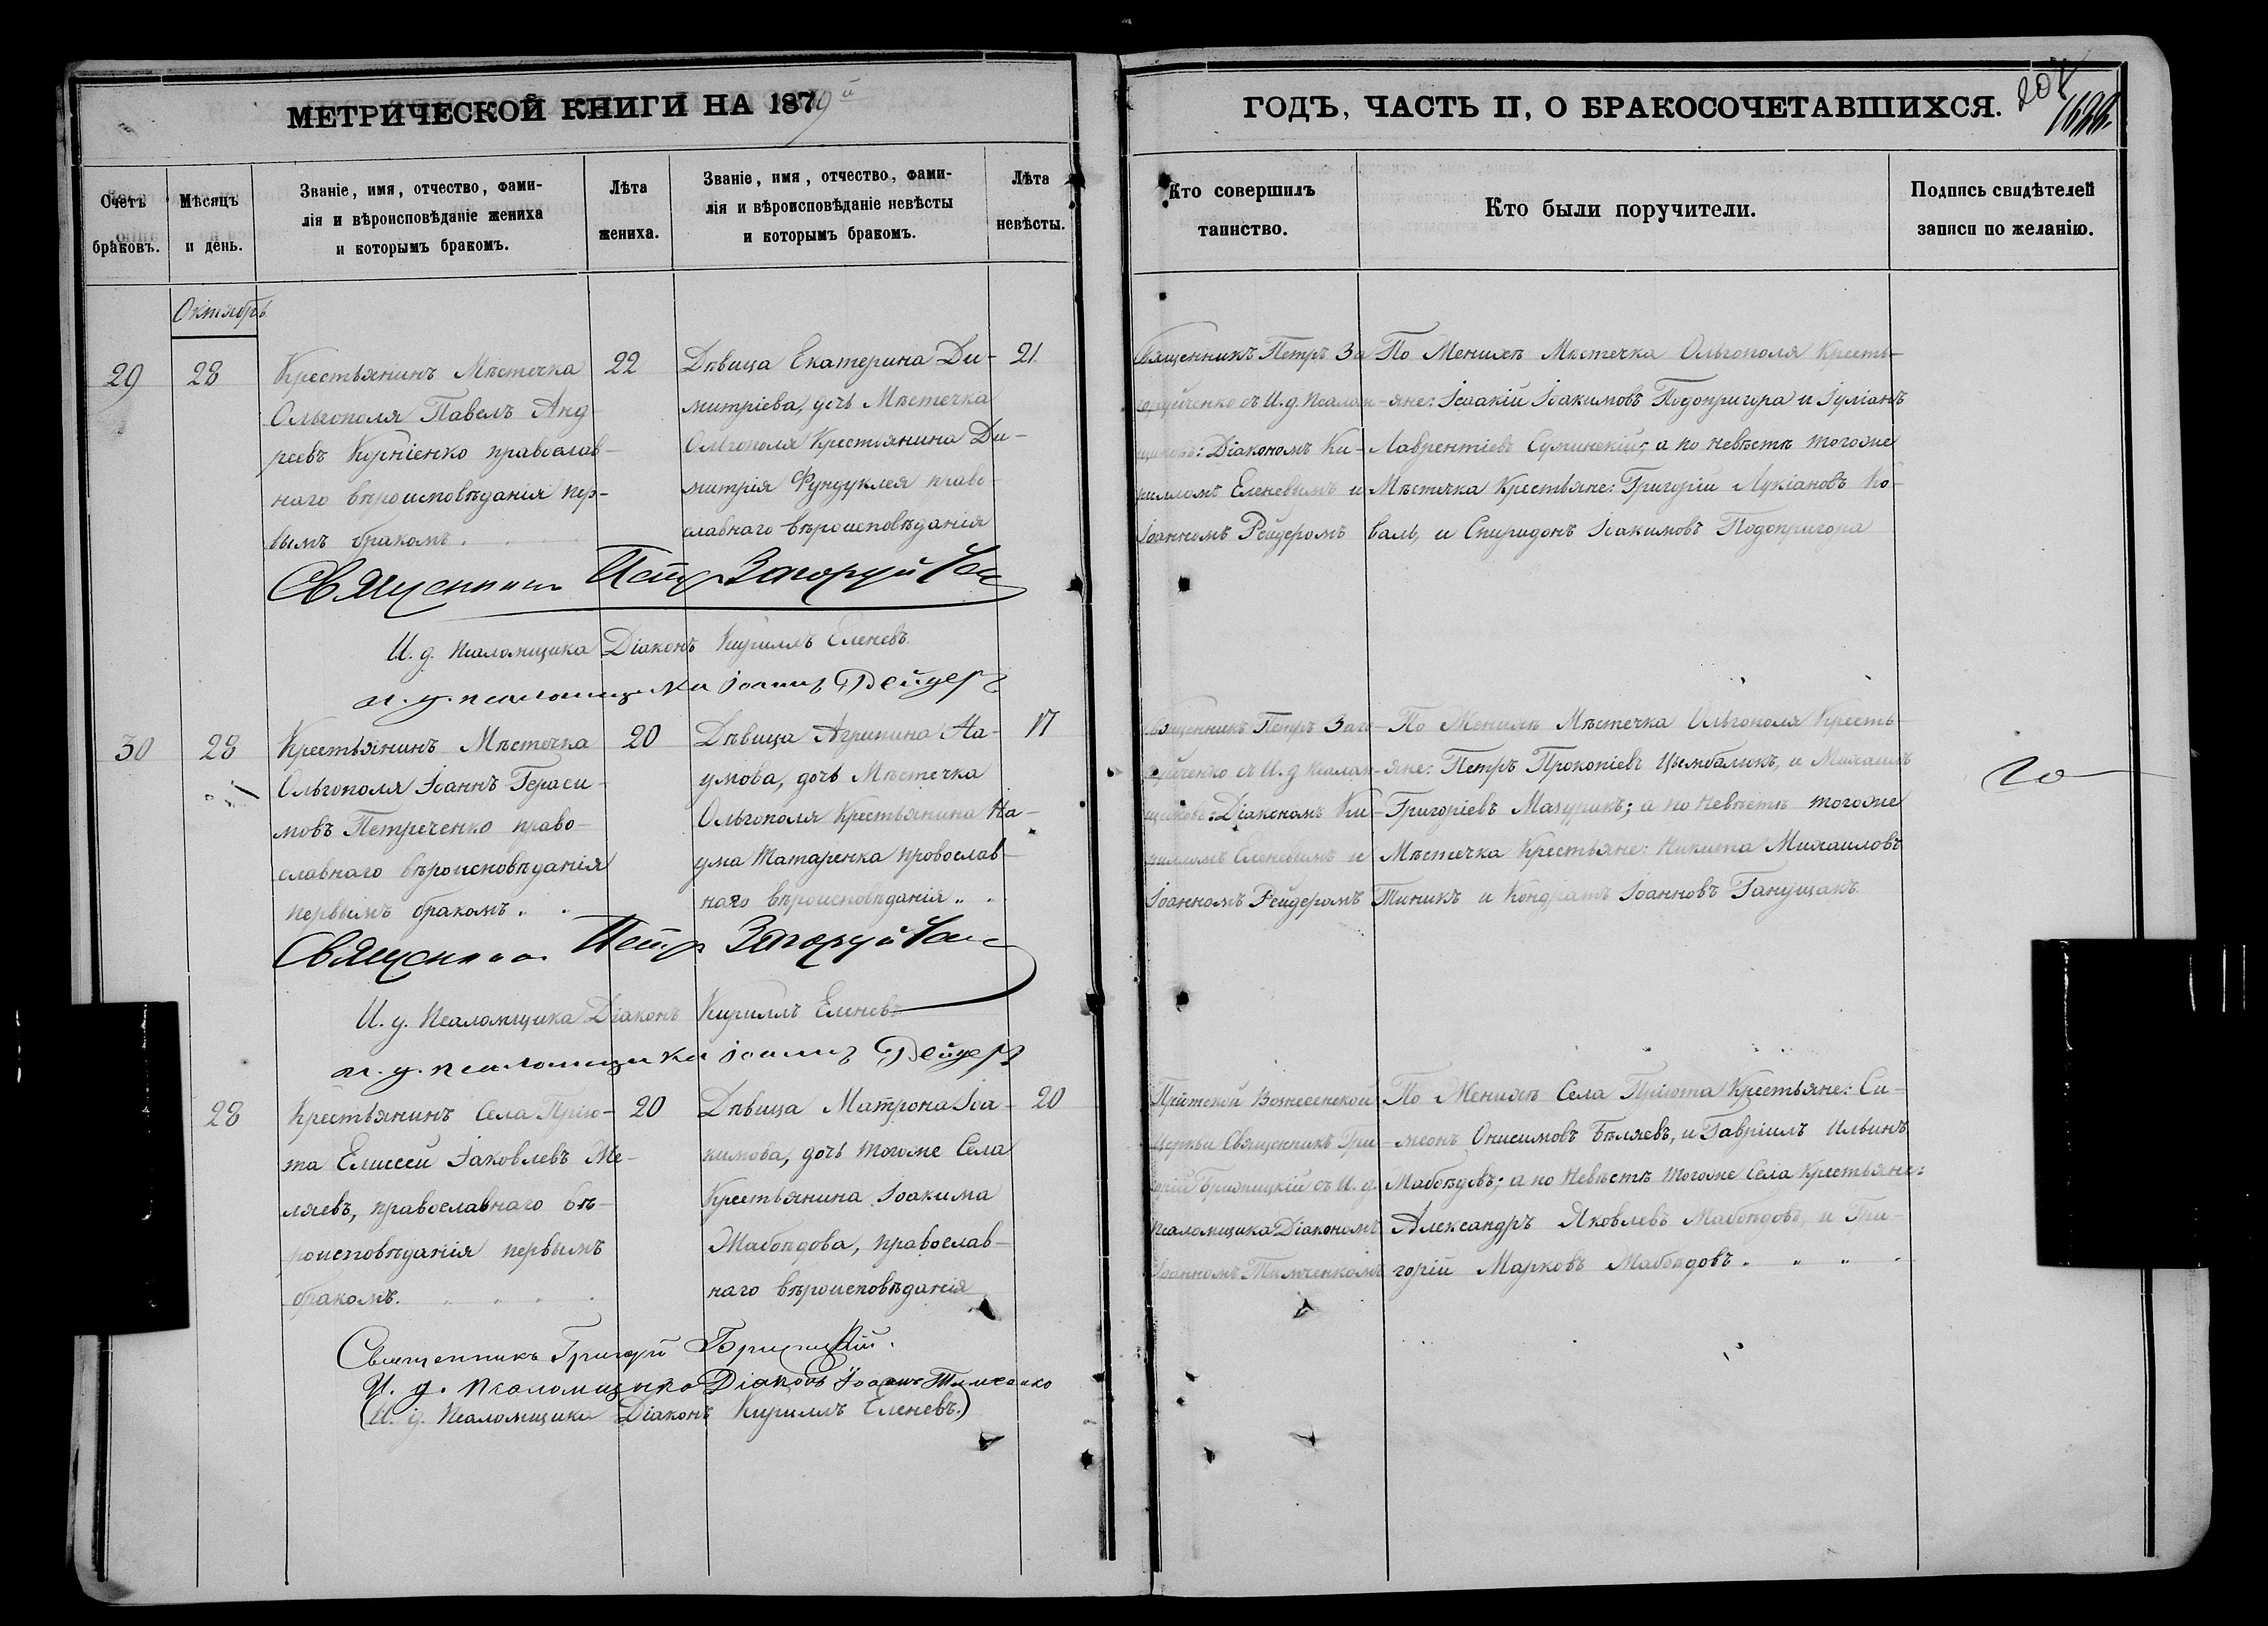 МЕТРИЧЕСКОЙ КНИГИ НА 1879й
ГОДЪ, ЧАСТЬ II, О БРАКОСОЧЕТАВШИХСЯ.
207
Счетъ браковъ.
Мѣсяцъ и день.
Званіе, имя, отчество, фами-
лія и вѣроисповѣданіе жениха
и которымъ бракомъ.
Лѣта жениха.
Званіе, имя, отчество, фами-
лія и вѣроисповѣданіе невѣсты
и которымъ бракомъ.
Лѣта невѣсты.
Кто совершилъ таинство.
Кто были поручители.
Подпись свидѣтелей
записи по желанію.
Октябрь
29
28
Крестьянинъ Мѣстечка
Ольгополя Павелъ Анд-
реевъ Корніенко православ-
наго вѣроисповѣданія пер-
вымъ бракомъ.
22
Дѣвица Екатерина Ди-
митріева, дочь Мѣстечка
Ольгополя Крестьянина Ди-
митрія Фундуклея право-
славнаго вѣроисповѣданія
21
Священникъ Петръ За
съ И. д. Псалом-
щиковъ: Діакономъ Ки-
рилломъ Еленевымъ и
Іоанномъ Рейдеромъ
По Женихѣ Мѣстечка Ольгополя Кресть-
яне: Ісаакій Іоакимовъ Подопригора и Іуліанъ
Лаврентіевъ а по невѣстѣ тогоже
Мѣстечка Крестьяне: Григорій Лукіановъ Ко-
валь, и Спиридонъ Іоакимовъ Подопригора
Священникъ Петръ Загоруйченко
И. д. Псаломщика Діаконъ Кириллъ Еленевъ
и. д. псаломщика Іоаннъ Рейдеръ
30
28
Крестьянинъ Мѣстечка
Ольгополя Іоаннъ Гераси-
мовъ Петреченко право-
славнаго вѣроисповѣданія
первымъ бракомъ.
20
Дѣвица Агрипина На-
умова, дочь Мѣстечка
Ольгополя Крестьянина На-
ума Татаренка провослав-
наго вѣроисповѣданія
17
Священникъ Петръ Заго-
руйченко съ И. д Псалом-
щиковъ: Діакономъ Ки-
рилломъ Еленевымъ и
Іоанномъ Рейдеромъ
По Женихѣ Мѣстечка Ольгополя Кресть-
яне: Петръ Прокопіевъ Цымбалюкъ, и Михаилъ
Григоріевъ Мазурикъ; а по Невѣстѣ тогоже
Мѣстечка Крестьяне: Никита Михаиловъ
Тиникъ и Кондратъ Іоанновъ Ганущакъ
Священникъ Петръ Загоруйченко
И. д. Псаломщика Діаконъ Кириллъ Еленевъ
и. д. псаломщика Іоаннъ Рейдеръ
28
Крестьянинъ Села Прію-
та Елисей Іаковлевъ Же-
ляевъ, православнаго вѣ-
роисповѣданія первымъ
бракомъ.
20
Дѣвица Матрона Іоа-
кимова, дочь тогоже Села
Крестьянина Іоакима
Жабѣдова, православ-
наго вѣроисповѣданія
20
Пріютской Вознесенской
Церкви Священникъ Гри-
горій съ И. д.
Псаломщика Діакономъ
Іоанномъ Тимченкомъ
По Женихѣ Села Пріюта Крестьяне: Си-
меонъ Онисимовъ Бѣляевъ, и Гавріилъ Ильинъ
Жабѣдовъ; а по Невѣстѣ тогоже Села Крестьяне:
Александръ Яковлевъ Жабѣдовъ, и Гри-
горій Марковъ Жабѣдовъ.
Священникъ Григорій
И. д. Псаломщика Діаконъ Іоаннъ Тимченко
(И. д. Псаломщика Діаконъ Кириллъ Еленевъ.)